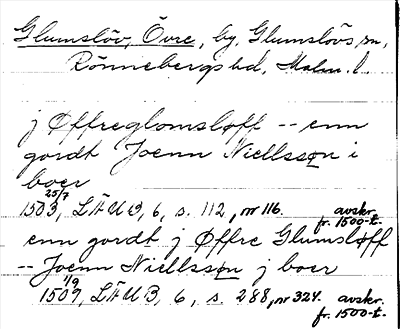 Glumslöv, Övre, by, Glumslövs sn,
Rönnebergs hd, Malm. l.
j Øffreglomsløff -- enn
gordt Joenn Niellssøn i
boer
25/7
1503, LÄUB, 6, s. 112, nr 116. avskr.
fr. 1500-t.
enn gordt j Øffre Glumsløff
-- Joenn Niellssøn j boer
1/9
1509, LÄUB, 6, s. 288, nr 324. avskr.
fr. 1500-t.